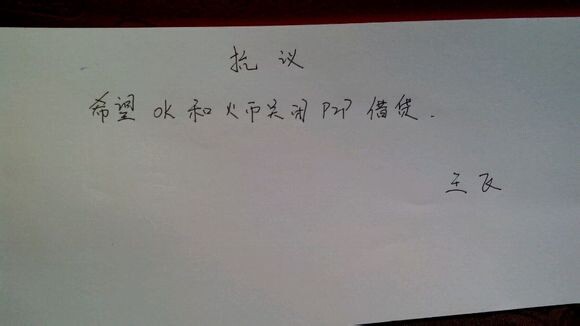 抗议
希望 OK 和火币关闭 P2P 借贷.
王飞